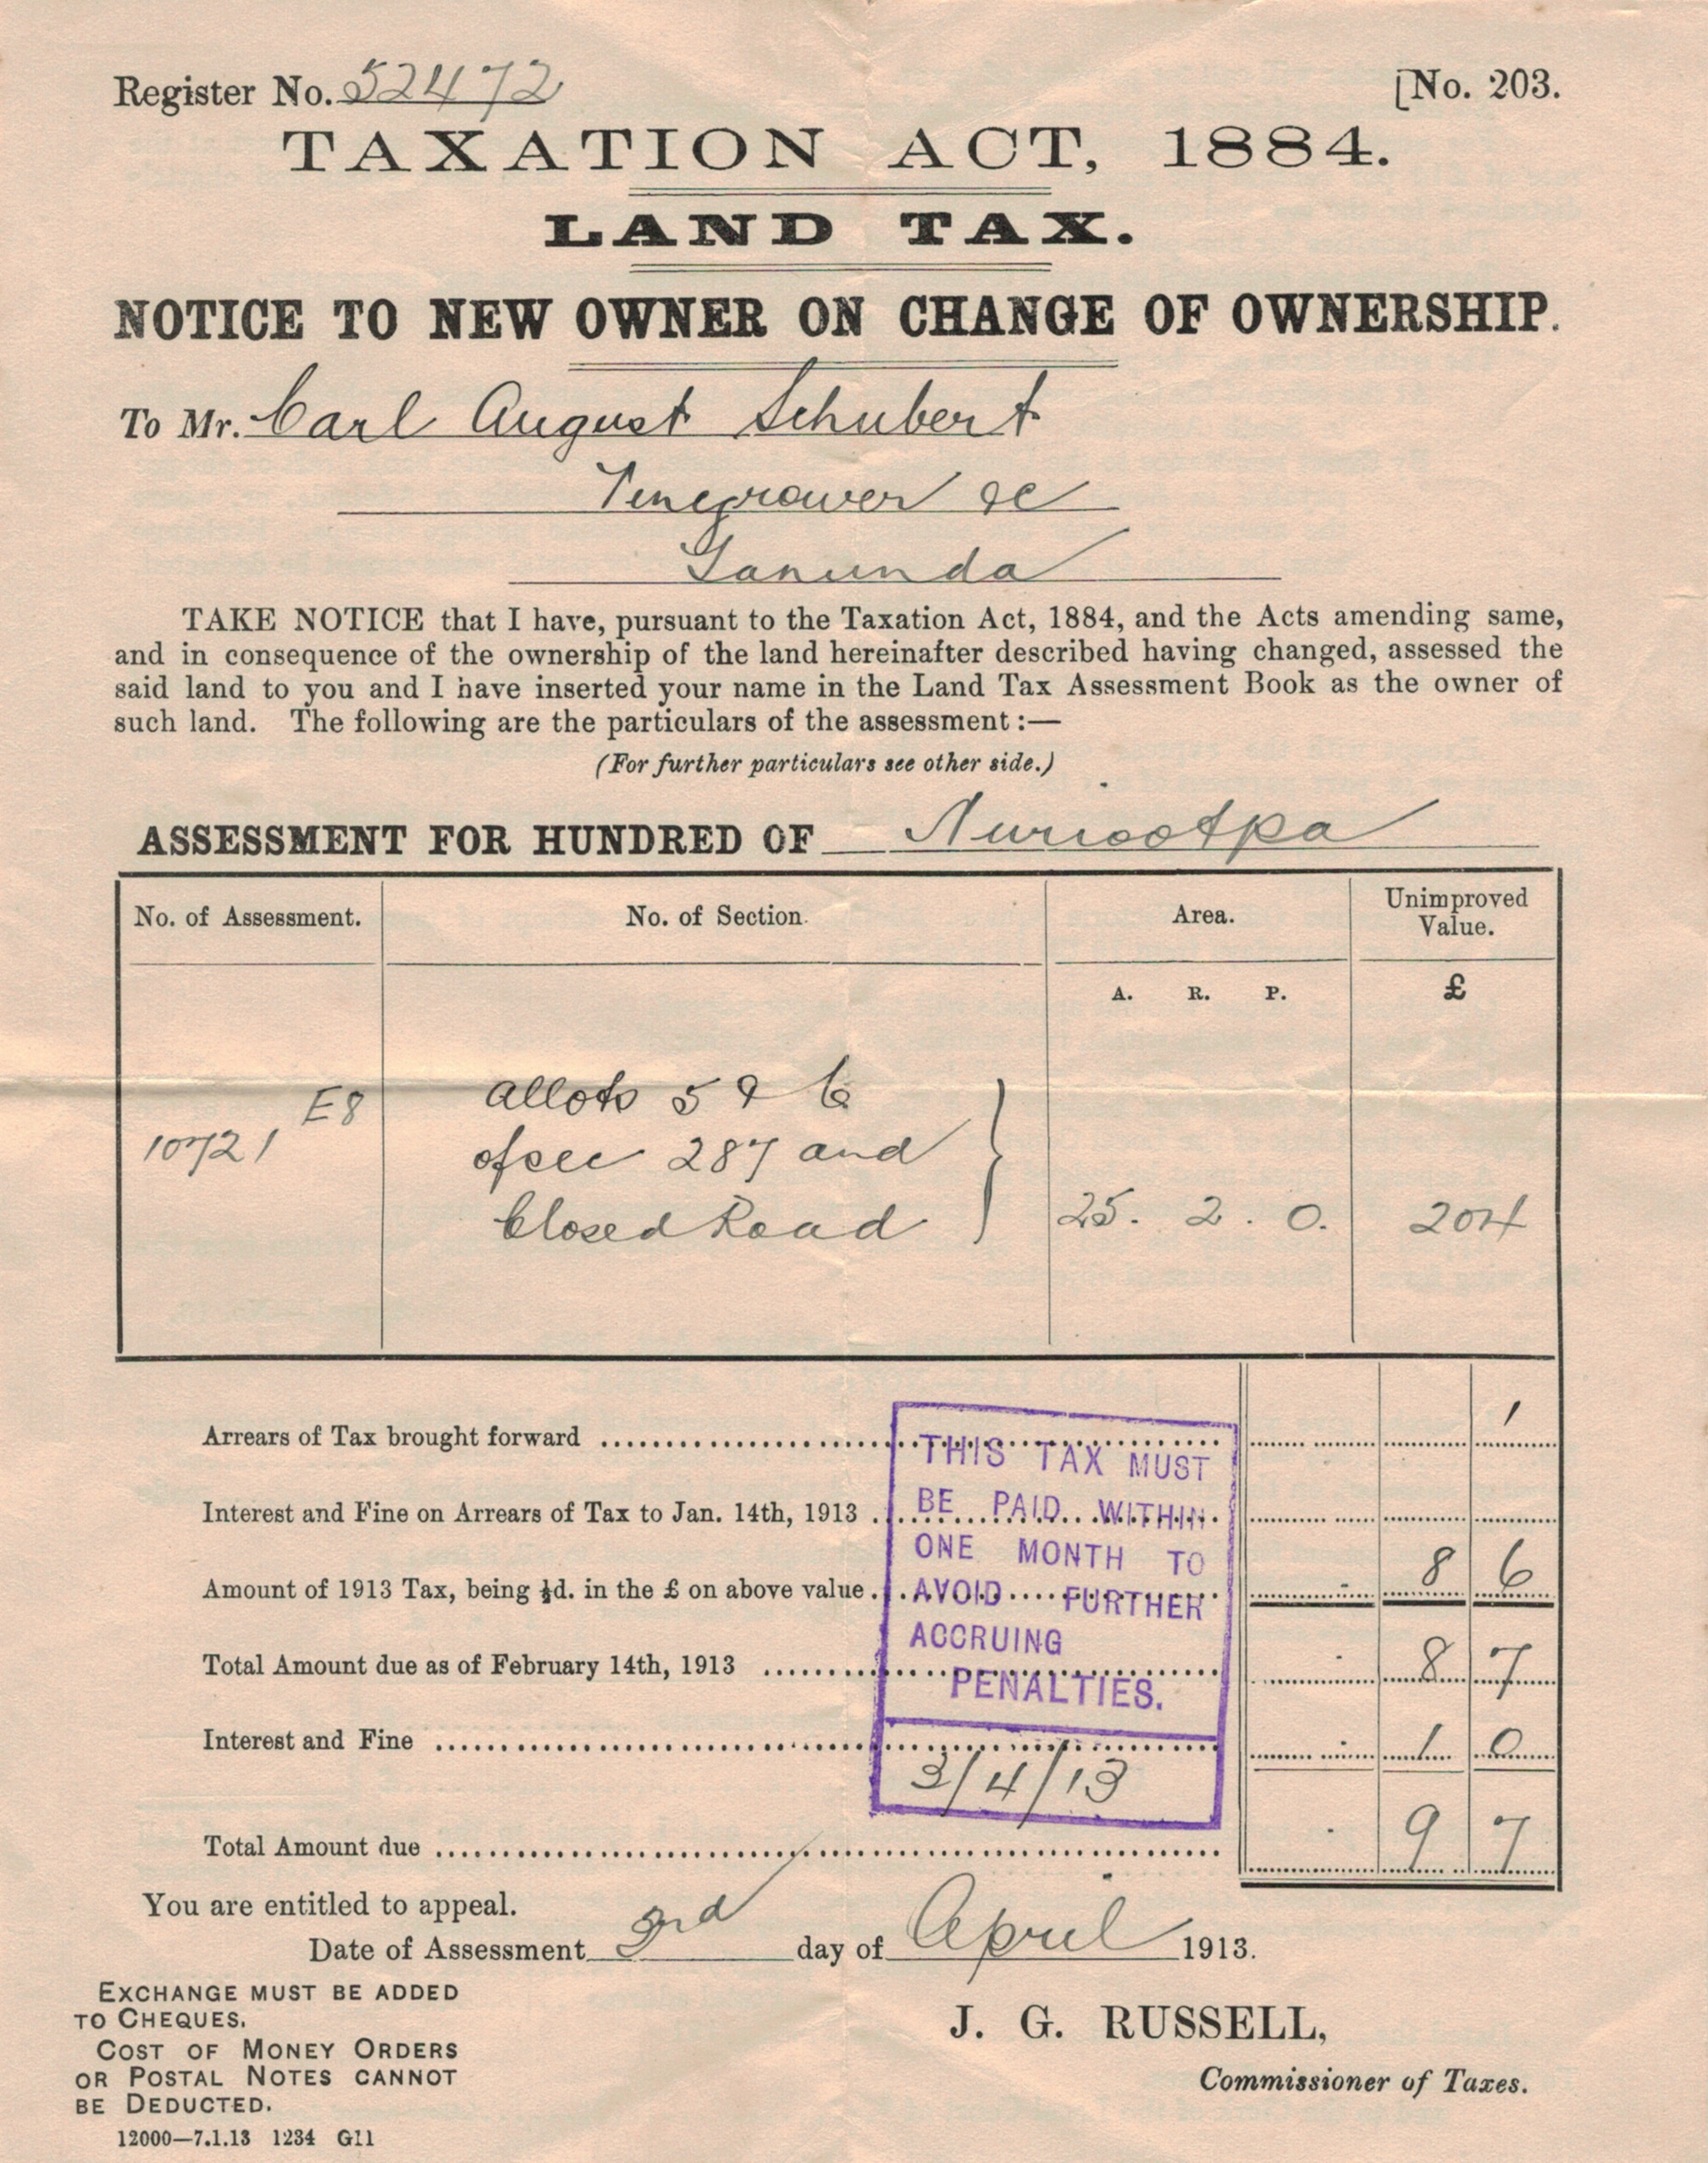 Register No. 52472 [No. 203.
TAXATION ACT, 1884.
LAND TAX.
NOTICE TO NEW OWNER ON CHANGE OF OWNERSHIP.
To Mr. Carl August Schubert
Vinegrower &c
Tanunda
TAKE NOTICE that I have, pursuant to the Taxation Act, 1884, and the Acts amending same,
and in consequence of the ownership of the land hereinafter described having changed, assessed the
said land to you and I have inserted your name in the Land Tax Assessment Book as the owner of
such land. The following are the particulars of the assessment :—
(For further particulars see other side.)
ASSESSMENT FOR HUNDRED OF Nuriootpa
No. of Assessment. No. of Section. Area. Unimproved Value.
A. R. P. £
10721 E8 allots 5 & 6
of sec 287 and
Closed Road 25. 2. 0. 204
Arrears of Tax brought forward 1
Interest and Fine on Arrears of Tax to Jan. 14th, 1913
Amount of 1913 Tax, being ½d. in the £ on above value - 8 6
Total Amount due as of February 14th, 1913 - 8 7
Interest and Fine - 1 0
Total Amount due - 9 7
THIS TAX MUST
BE PAID WITHIN
ONE MONTH TO
AVOID FURTHER
ACCRUING
PENALTIES.
3/4/13
You are entitled to appeal.
Date of Assessment 3rd day of April 1913.
EXCHANGE MUST BE ADDED
TO CHEQUES.
COST OF MONEY ORDERS
OR POSTAL NOTES CANNOT
BE DEDUCTED.
12000—7.1.13 1234 G11
J. G. RUSSELL,
Commissioner of Taxes.